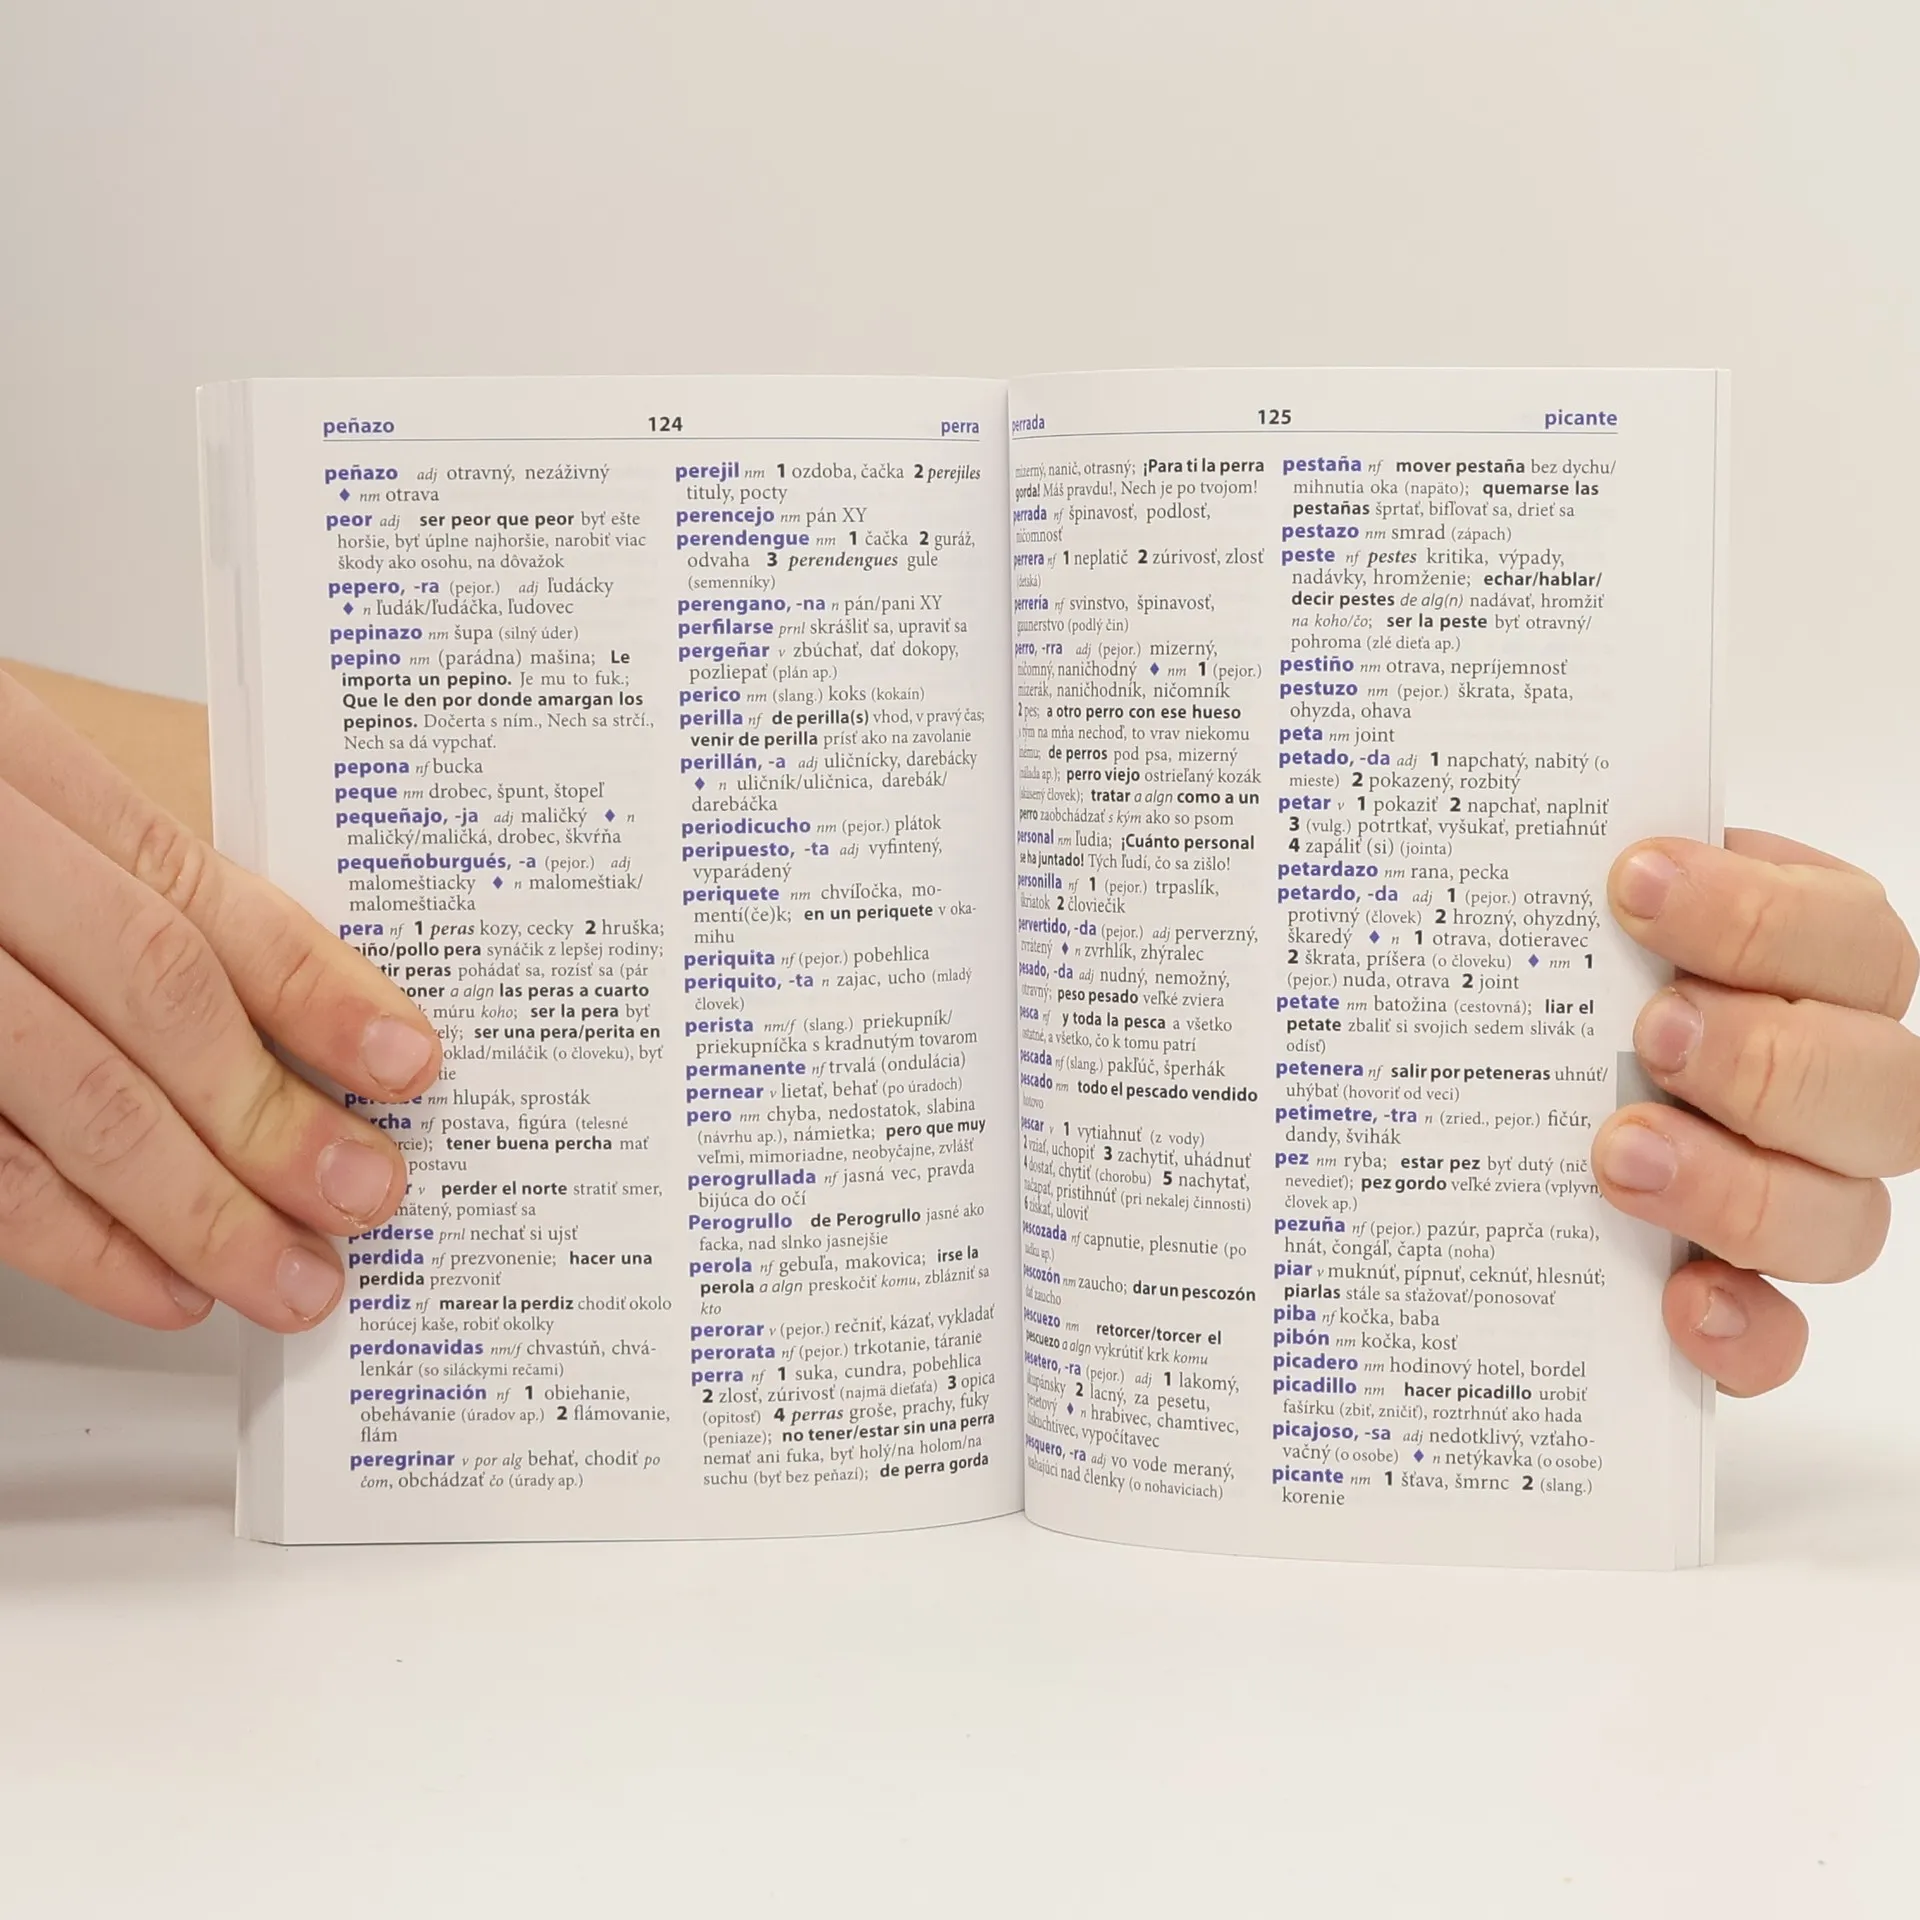 peñazo 124 perra
peñazo adj otravný, nezáživný
♦ nm otrava
peor adj ser peor que peor byť ešte
horšie, byť úplne najhoršie, narobiť viac
škody ako osohu, na dôvažok
pepero, -ra (pejor.) adj ľudácky
♦ n ľudák/ľudáčka, ľudovec
pepinazo nm šupa (silný úder)
pepino nm (parádna) mašina; Le
importa un pepino. Je mu to fuk.;
Que le den por donde amargan los
pepinos. Dočerta s ním., Nech sa strčí.,
Nech sa dá vypchať.
pepona nf bucka
peque nm drobec, špunt, štopeľ
pequeñajo, -ja adj maličký ♦ n
maličký/maličká, drobec, škvŕňa
pequeñoburgués, -a (pejor.) adj
malomeštiacky ♦ n malomeštiak/
malomeštiačka
pera nf 1 peras kozy, cecky 2 hruška;
niño/pollo pera synáčik z lepšej rodiny;
peras pohádať sa, rozísť sa (pár
poner a algn las peras a cuarto
múru koho; ser la pera byť
ser una pera/perita en
miláčik (o človeku), byť
nm hlupák, sprosták
nf postava, figúra (telesné
tener buena percha mať
postavu
v perder el norte stratiť smer,
pomiasť sa
perderse prnl nechať si ujsť
perdida nf prezvonenie; hacer una
perdida prezvoniť
perdiz nf marear la perdiz chodiť okolo
horúcej kaše, robiť okolky
perdonavidas nm/f chvastúň, chvá-
lenkár (so siláckymi rečami)
peregrinación nf 1 obiehanie,
obehávanie (úradov ap.) 2 flámovanie,
flám
peregrinar v por alg behať, chodiť po
čom, obchádzať čo (úrady ap.)
perejil nm 1 ozdoba, čačka 2 perejiles
tituly, pocty
perencejo nm pán XY
perendengue nm 1 čačka 2 guráž,
odvaha 3 perendengues gule
(semenníky)
perengano, -na n pán/pani XY
perfilarse prnl skrášliť sa, upraviť sa
pergeñar v zbúchať, dať dokopy,
pozliepať (plán ap.)
perico nm (slang.) koks (kokaín)
perilla nf de perilla(s) vhod, v pravý čas;
venir de perilla prísť ako na zavolanie
perillán, -a adj uličnícky, darebácky
♦ n uličník/uličnica, darebák/
darebáčka
periodicucho nm (pejor.) plátok
peripuesto, -ta adj vyfintený,
vyparádený
periquete nm chvíľočka, mo-
mentí(če)k; en un periquete v oka-
mihu
periquita nf (pejor.) pobehlica
periquito, -ta n zajac, ucho (mladý
človek)
perista nm/f (slang.) priekupník/
priekupníčka s kradnutým tovarom
permanente nf trvalá (ondulácia)
pernear v lietať, behať (po úradoch)
pero nm chyba, nedostatok, slabina
(návrhu ap.), námietka; pero que muy
veľmi, mimoriadne, neobyčajne, zvlášť
perogrullada nf jasná vec, pravda
bijúca do očí
Perogrullo de Perogrullo jasné ako
facka, nad slnko jasnejšie
perola nf gebuľa, makovica; irse la
perola a algn preskočiť komu, zblázniť sa
kto
perorar v (pejor.) rečniť, kázať, vykladať
perorata nf (pejor.) trkotanie, táranie
perra nf 1 suka, cundra, pobehlica
2 zlosť, zúrivosť (najmä dieťaťa) 3 opica
(opitosť) 4 perras groše, prachy, fuky
(peniaze); no tener/estar sin una perra
nemať ani fuka, byť holý/na holom/na
suchu (byť bez peňazí); de perra gorda
perrada 125 picante
mizerný, nanič, otrasný; ¡Para ti la perra
gorda! Máš pravdu!, Nech je po tvojom!
perrada nf špinavosť, podlosť,
ničomnosť
perrera nf 1 neplatič 2 zúrivosť, zlosť
(detská)
perrería nf svinstvo, špinavosť,
gaunerstvo (podlý čin)
perro, -rra adj (pejor.) mizerný,
ničomný, naničhodný ♦ nm 1 (pejor.)
mizerák, naničhodník, ničomník
2 pes; a otro perro con ese hueso
s tým na mňa nechoď, to vrav niekomu
inému; de perros pod psa, mizerný
(nálada ap.); perro viejo ostrieľaný kozák
(skúsený človek); tratar a algn como a un
perro zaobchádzať s kým ako so psom
personal nm ľudia; ¡Cuánto personal
se ha juntado! Tých ľudí, čo sa zišlo!
personilla nf 1 (pejor.) trpaslík,
škriatok 2 človiečik
pervertido, -da (pejor.) adj perverzný,
zvrátený ♦ n zvrhlík, zhýralec
pesado, -da adj nudný, nemožný,
otravný; peso pesado veľké zviera
pesca nf y toda la pesca a všetko
ostatné, a všetko, čo k tomu patrí
pescada nf (slang.) pakľúč, šperhák
pescado nm todo el pescado vendido
hotovo
pescar v 1 vytiahnuť (z vody)
2 vziať, uchopiť 3 zachytiť, uhádnuť
4 dostať, chytiť (chorobu) 5 nachytať,
načapať, pristihnúť (pri nekalej činnosti)
6 získať, uloviť
pescozada nf capnutie, plesnutie (po
zátku ap.)
pescozón nm zaucho; dar un pescozón
dať zaucho
pescuezo nm retorcer/torcer el
pescuezo a algn vykrútiť krk komu
pesetero, -ra (pejor.) adj 1 lakomý,
skupánsky 2 lacný, za pesetu,
pesetový ♦ n hrabivec, chamtivec,
úskuchtivec, vypočítavec
pesquero, -ra adj vo vode meraný,
siahajúci nad členky (o nohaviciach)
pestaña nf mover pestaña bez dychu/
mihnutia oka (napäto); quemarse las
pestañas šprtať, bifľovať sa, drieť sa
pestazo nm smrad (zápach)
peste nf pestes kritika, výpady,
nadávky, hromženie; echar/hablar/
decir pestes de alg(n) nadávať, hromžiť
na koho/čo; ser la peste byť otravný/
pohroma (zlé dieťa ap.)
pestiño nm otrava, nepríjemnosť
pestuzo nm (pejor.) škrata, špata,
ohyzda, ohava
peta nm joint
petado, -da adj 1 napchatý, nabitý (o
mieste) 2 pokazený, rozbitý
petar v 1 pokaziť 2 napchať, naplniť
3 (vulg.) potrtkať, vyšukať, pretiahnúť
4 zapáliť (si) (jointa)
petardazo nm rana, pecka
petardo, -da adj 1 (pejor.) otravný,
protivný (človek) 2 hrozný, ohyzdný,
škaredý ♦ n 1 otrava, dotieravec
2 škrata, príšera (o človeku) ♦ nm 1
(pejor.) nuda, otrava 2 joint
petate nm batožina (cestovná); liar el
petate zbaliť si svojich sedem slivák (a
odísť)
petenera nf salir por peteneras uhnúť/
uhýbať (hovoriť od veci)
petimetre, -tra n (zried., pejor.) fičúr,
dandy, švihák
pez nm ryba; estar pez byť dutý (nič
nevedieť); pez gordo veľké zviera (vplyvný
človek ap.)
pezuña nf (pejor.) pazúr, paprča (ruka),
hnát, čongáľ, čapta (noha)
piar v muknúť, pípnuť, ceknúť, hlesnúť;
piarlas stále sa sťažovať/ponosovať
piba nf kočka, baba
pibón nm kočka, kosť
picadero nm hodinový hotel, bordel
picadillo nm hacer picadillo urobiť
fašírku (zbiť, zničiť), roztrhnúť ako hada
picajoso, -sa adj nedotklivý, vzťaho-
vačný (o osobe) ♦ n netýkavka (o osobe)
picante nm 1 šťava, šmrnc 2 (slang.)
korenie